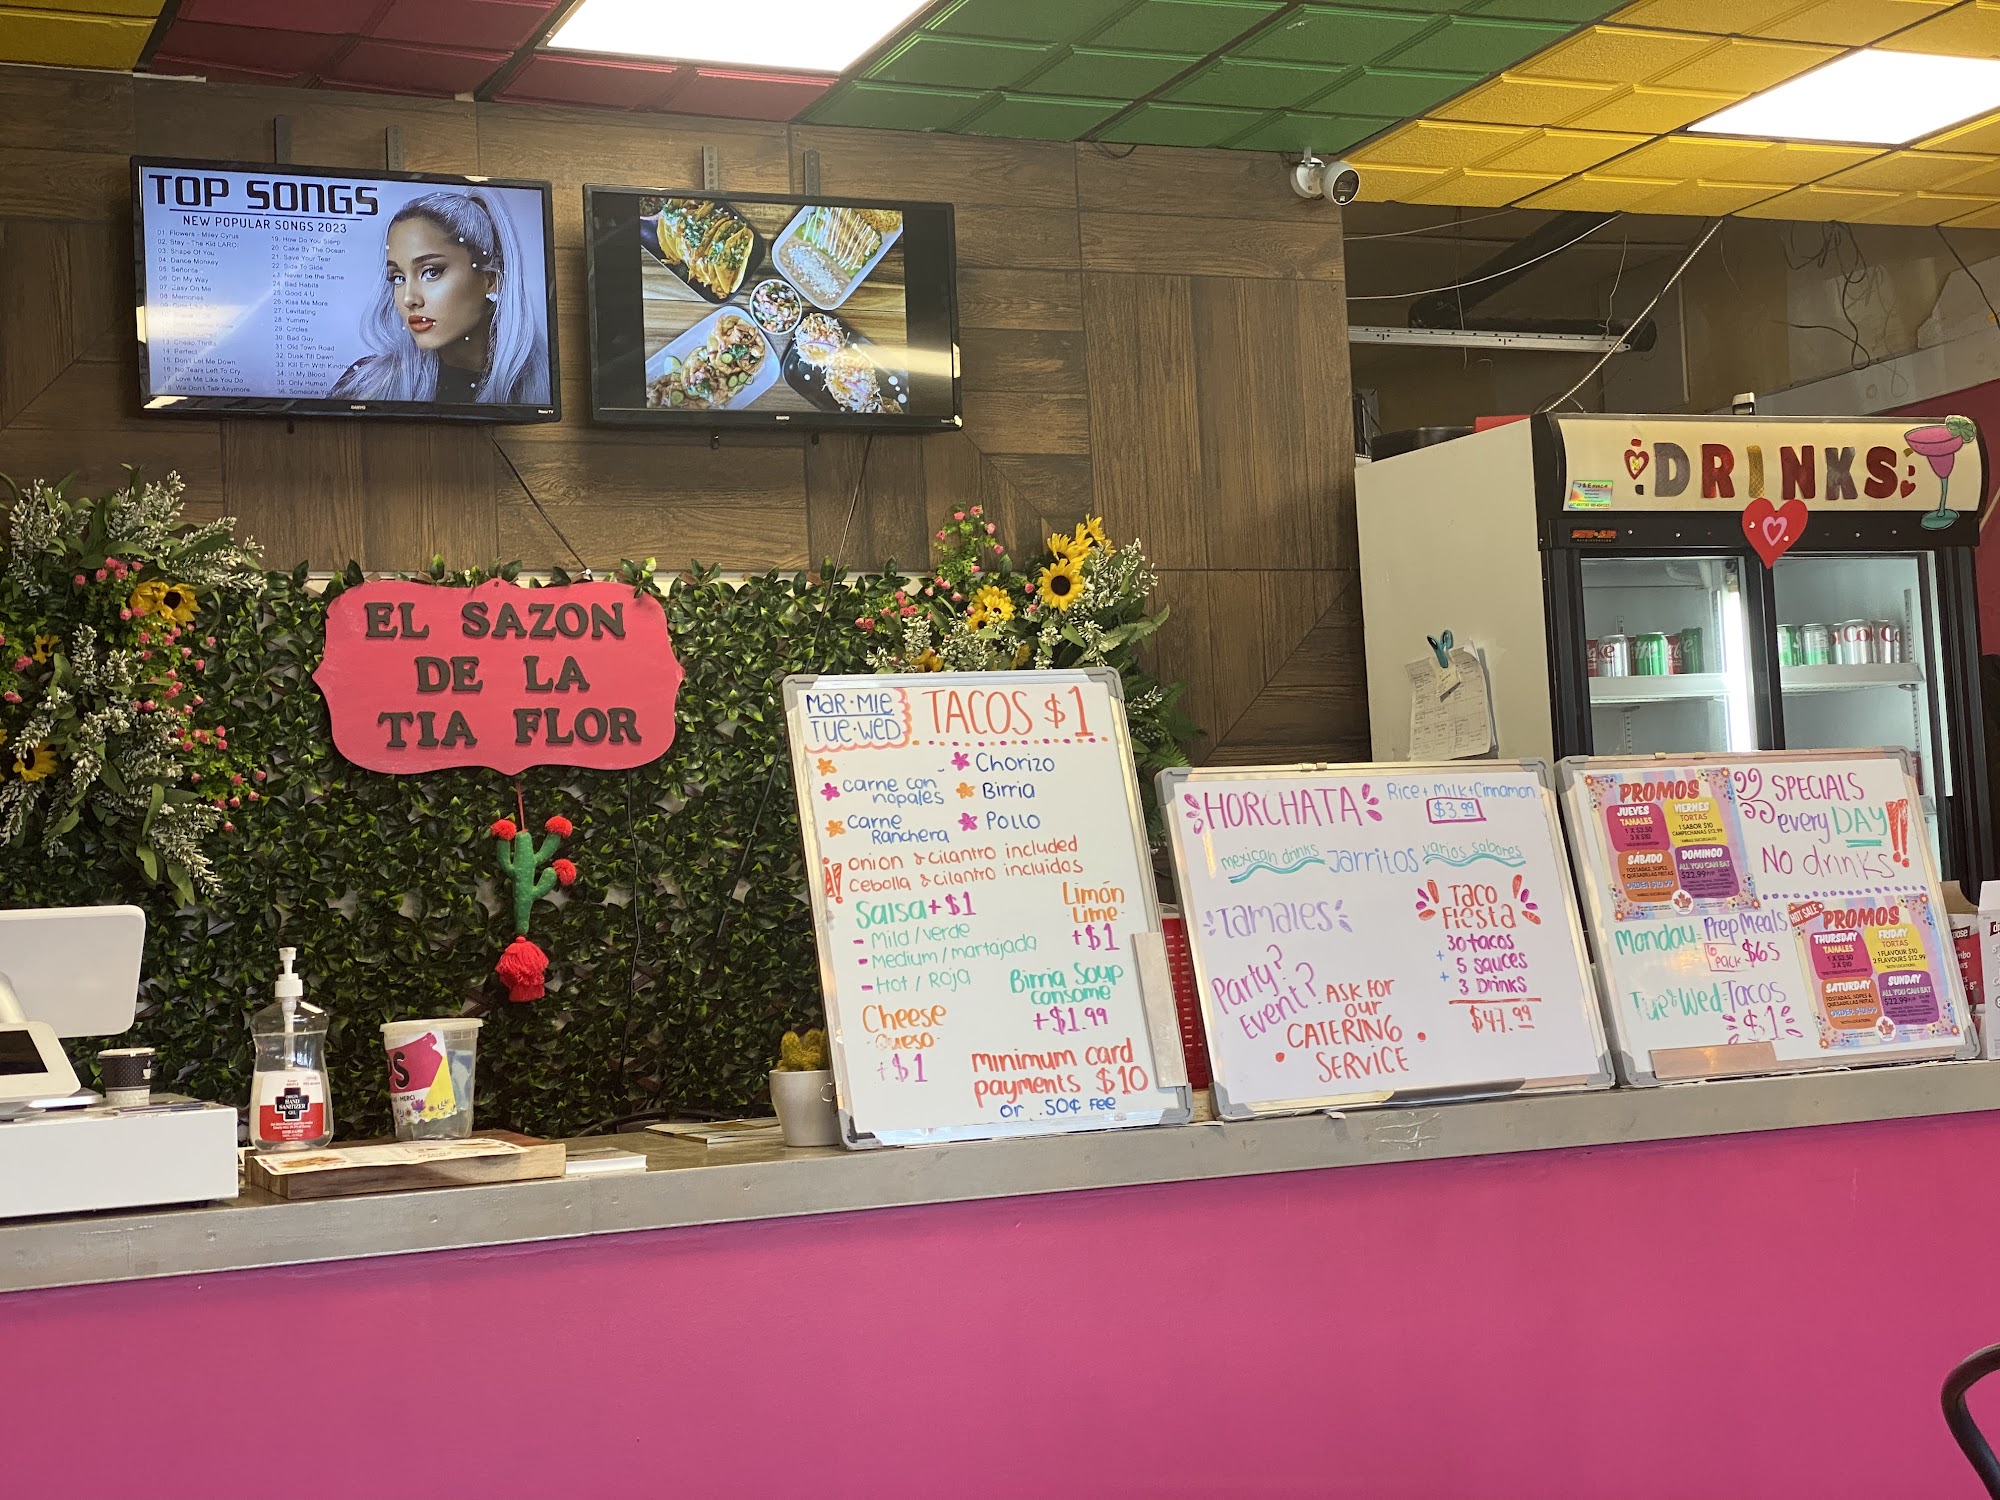 TOP SONGS
NEW POPULAR SONGS 2023
01. Flowers - Miley Cyrus
02. Stay - The Kid LAROI
03. Shape Of You
04. Dance Monkey
05. Señorita
06. On My Way
07. Easy On Me
08. Memories
13. Cheap Thrills
14. Perfect
15. Don't Let Me Down
16. No Tears Left To Cry
17. Love Me Like You Do
18. We Don't Talk Anymore
19. How Do You Sleep
20. Cake By The Ocean
21. Save Your Tear
22. Side To Side
23. Never be the Same
24. Bad Habits
25. Good 4 U
26. Kiss Me More
27. Levitating
28. Yummy
29. Circles
30. Bad Guy
31. Old Town Road
32. Dusk Till Dawn
33. Kill Em With Kindne
34. In My Blood
35. Only Human
36. Someone You
SANYO
Roku TV
SANYO
DRINKS
EL SAZON
DE LA
TIA FLOR
MAR·MIE
TUE·WED
TACOS $1
Carne con
nopales
Carne
Ranchera
Chorizo
Birria
POLLO
onion & cilantro included
Cebolla & cilantro incluidos
Salsa +$1
- Mild / verde
- Medium / martajada
- Hot / Roja
Limón
Lime
+$1
Birria Soup
consome
+$1.99
Cheese
Queso
+$1
minimum card
payments $10
or .50¢ Fee
HORCHATA
Rice + Milk + Cinnamon
$3.99
mexican drinks Jarritos varios sabores
Tamales
Party?
Event?
ASK FOR
our
CATERING
SERVICE
Taco
Fiesta
30 tacos
+ 5 sauces
+ 3 Drinks
$47.99
PROMOS
JUEVES
TAMALES
1 X $3.50
3 X $10
VIERNES
TORTAS
1 SABOR $10
CAMPECHANAS $12.99
SÁBADO
TOSTADAS, SOPES
Y QUESADILLAS FRITAS
ORDER $10.99
DOMINGO
ALL YOU CAN EAT
$22.99 P/P
SPECIALS
every DAY!!
NO drinks
Monday = Prep Meals
6 PACK $65
Tue & Wed = Tacos
$1
HOT SALE
PROMOS
THURSDAY
TAMALES
1 X $3.50
3 X $10
FRIDAY
TORTAS
1 FLAVOUR $10
2 FLAVOURS $12.99
SATURDAY
TOSTADAS, SOPES &
QUESADILLAS FRITAS
ORDER $10.99
SUNDAY
ALL YOU CAN EAT
$22.99 P/P
HAND
SANITIZER
GEL
PS
MERCI
Coke